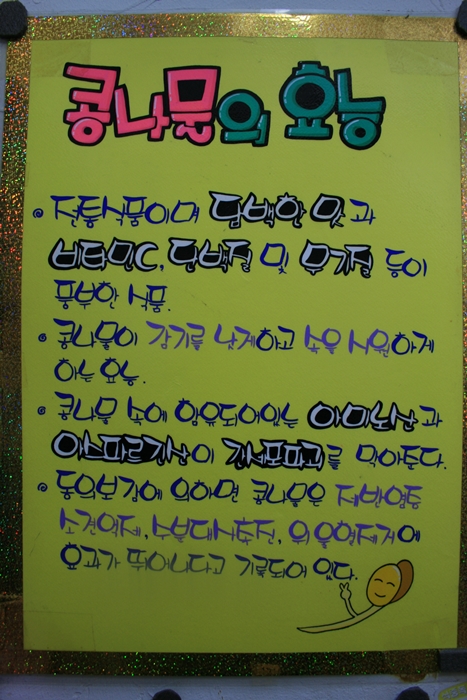 콩나물의 효능
전통식품이며 담백한 맛과
비타민C, 단백질 및 무기질 등이
풍부한 식품.
콩나물이 감기를 낫게하고 속을 시원하게
하는 효능.
콩나물 속에 함유되어있는 아미노산과
아스파르긴산이 간세포파괴를 막아준다.
동의보감에 의하면 콩나물은 제반염증
소견억제, 수분대사촉진, 위울열제거에
효과가 뛰어나다고 기록되어 있다.